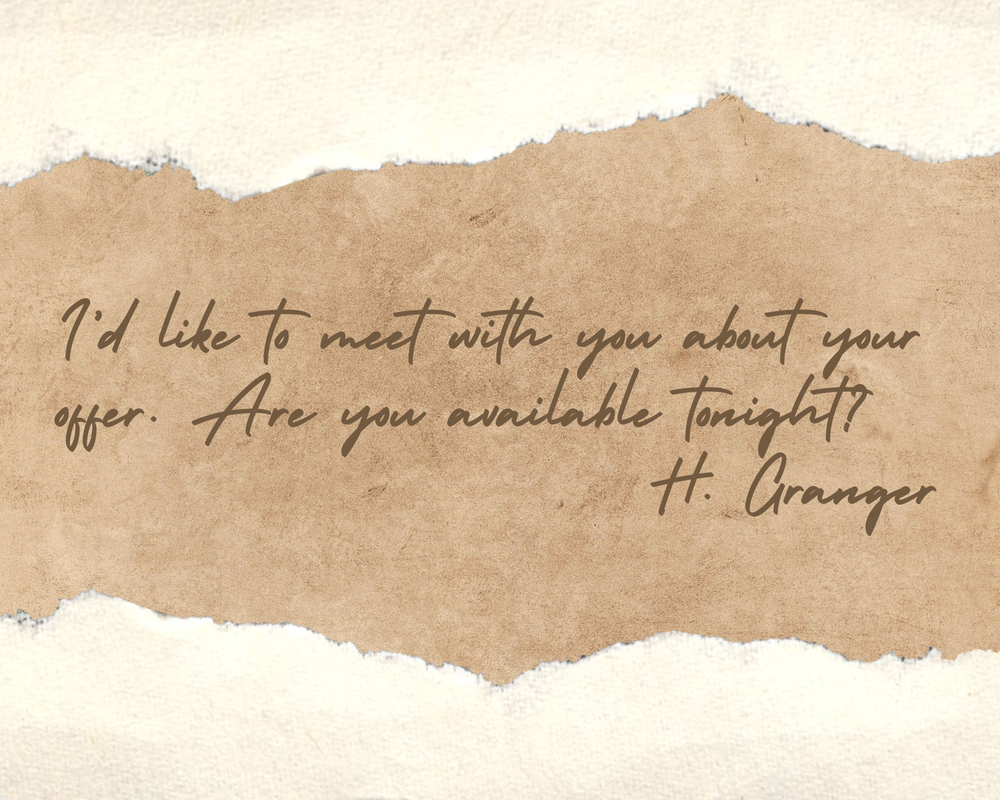 I'd like to meet with you about your
offer. Are you available tonight?
H. Granger